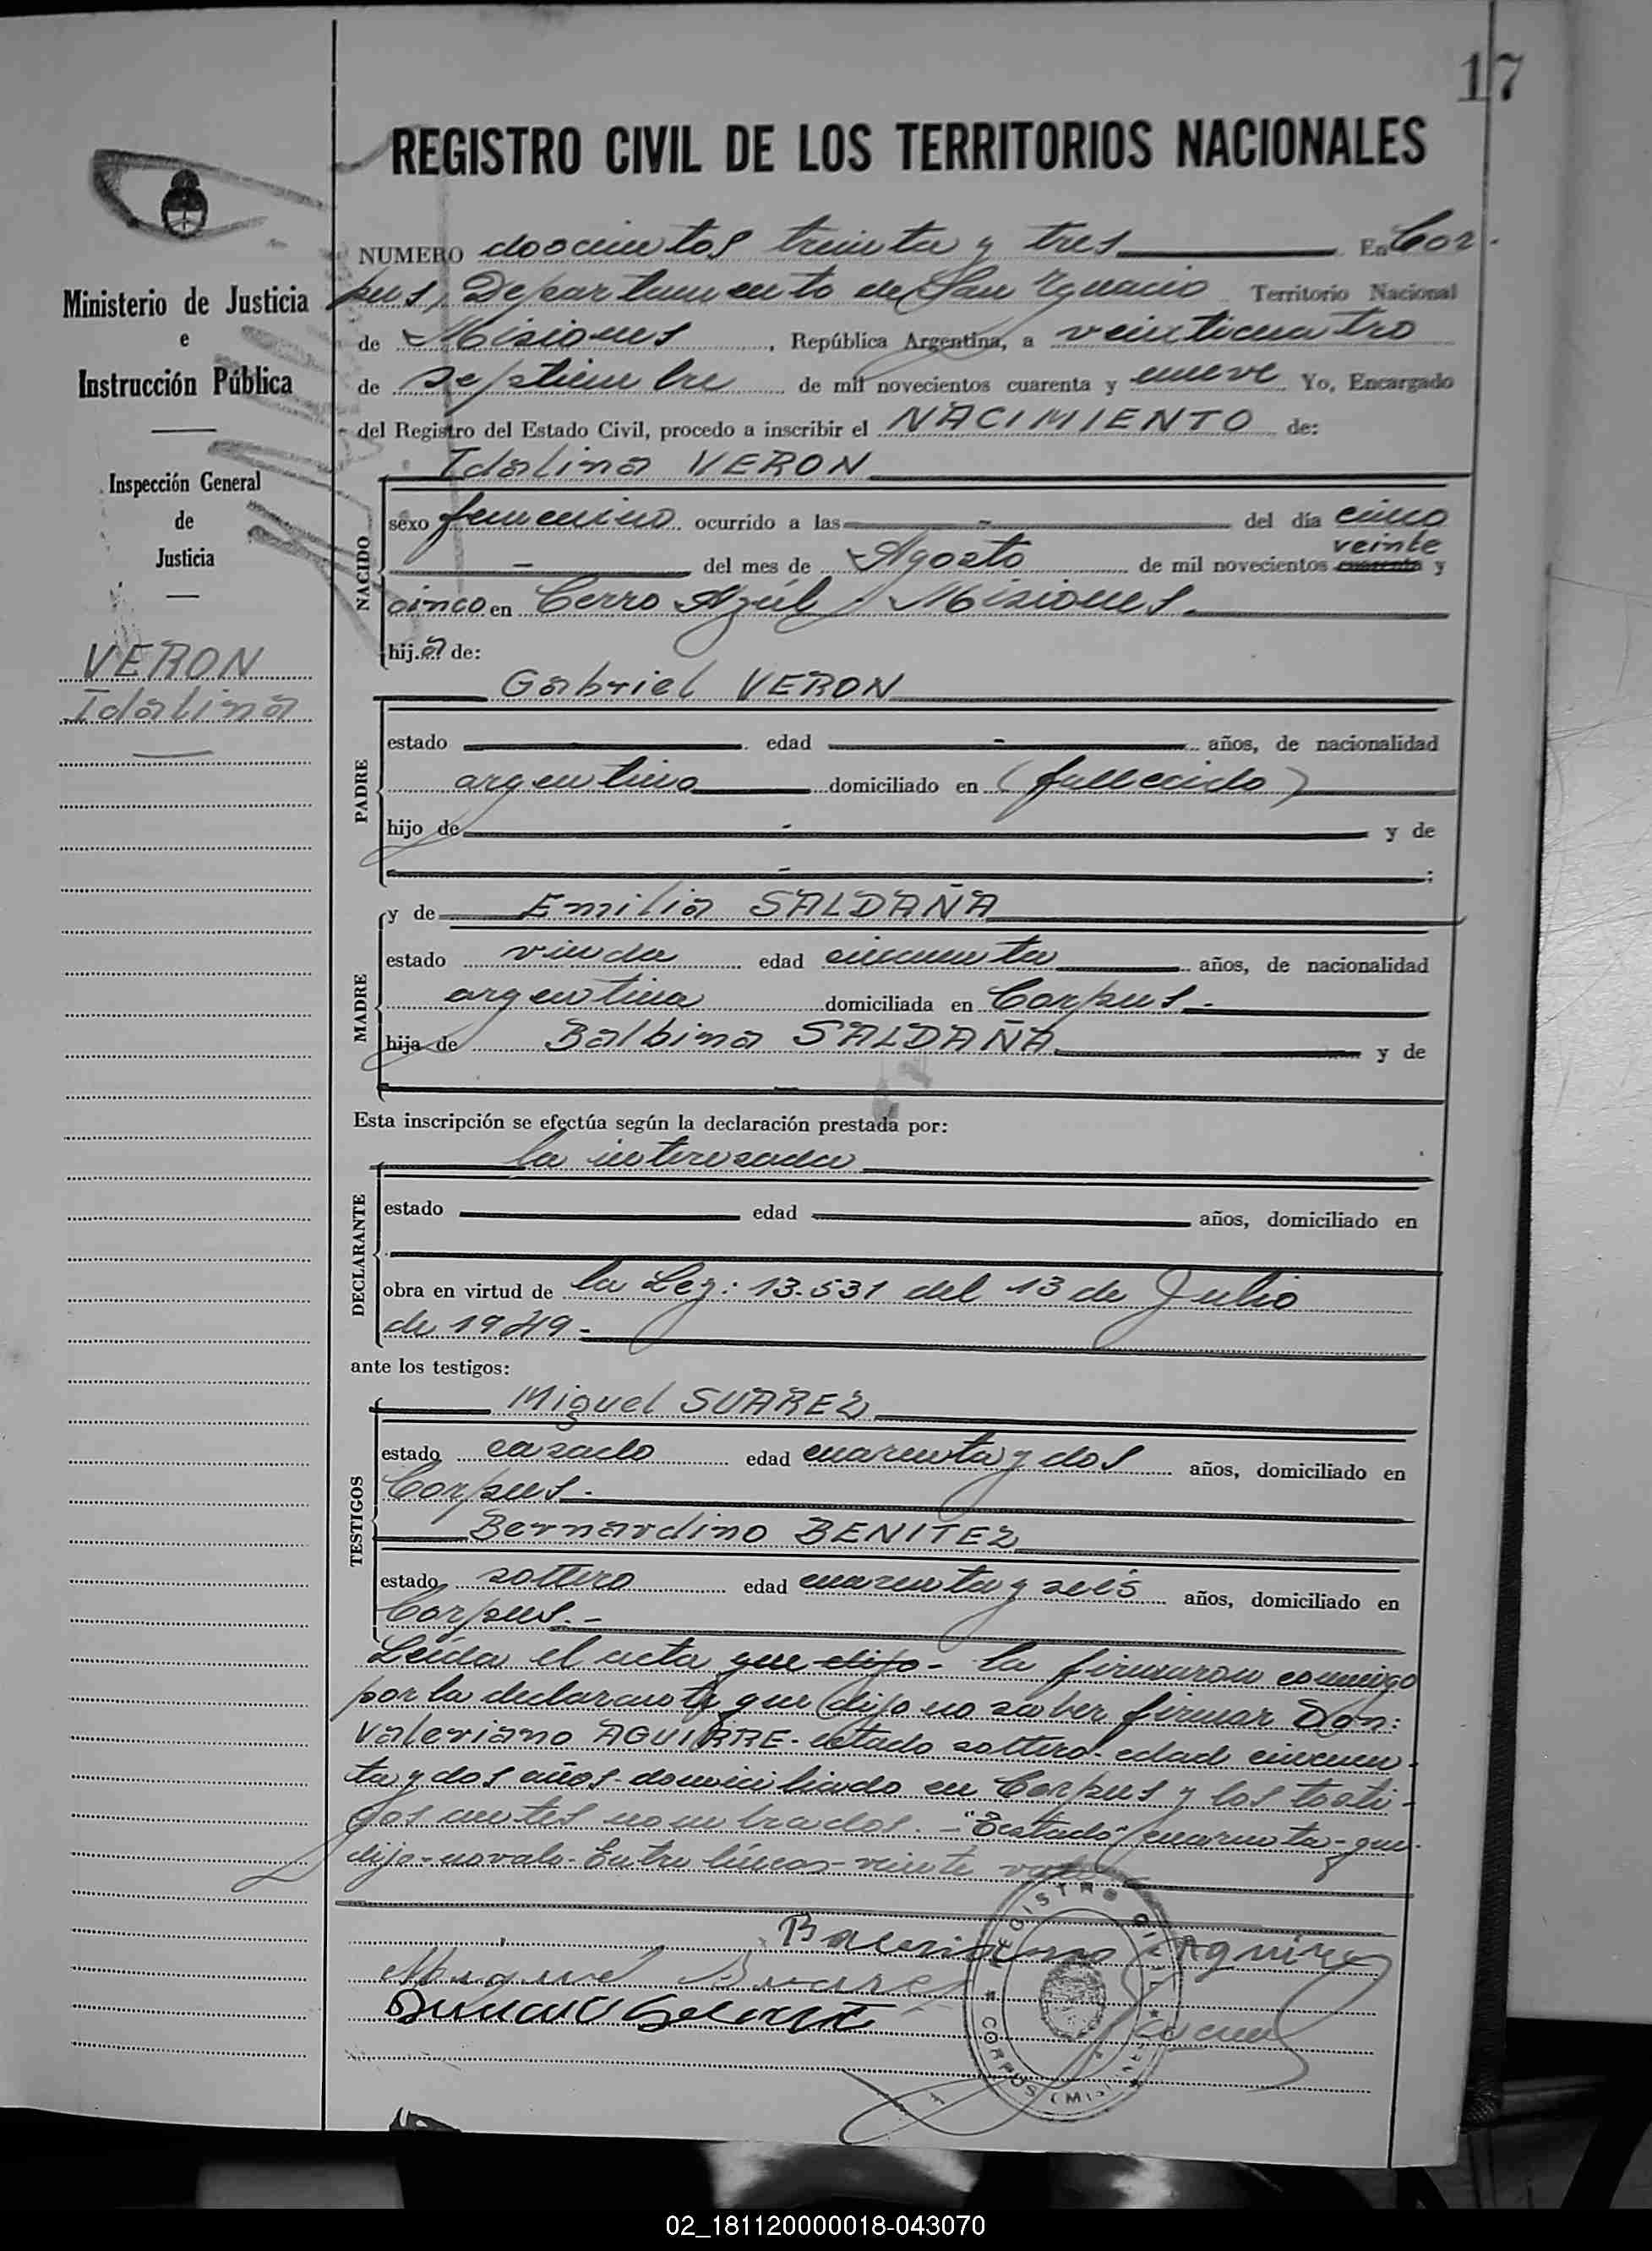 17
REGISTRO CIVIL DE LOS TERRITORIOS NACIONALES
NUMERO doscientos treinta y tres En Cor-
pus, Departamento de San Ignacio Territorio Nacional
de Misiones, República Argentina, a veinticuatro
de septiembre de mil novecientos cuarenta y nueve Yo, Encargado
del Registro del Estado Civil, procedo a inscribir el NACIMIENTO de:
Idalina VERON
Ministerio de Justicia
e
Instrucción Pública
Inspección General
de
Justicia
VERON
Idalina
NACIDO
sexo femenino ocurrido a las - del día cinco
veinte
- del mes de Agosto de mil novecientos cuarenta y
cinco en Cerro Azúl, Misiones.
hij.a de:
Gabriel VERON
PADRE
estado - edad - años, de nacionalidad
argentino domiciliado en (fallecido)
hijo de - y de
- ;
MADRE
y de Emilia SALDAÑA
estado viuda edad cincuenta años, de nacionalidad
argentina domiciliada en Corpus.-
hija de Balbina SALDAÑA y de
-
Esta inscripción se efectúa según la declaración prestada por:
la interesada
DECLARANTE
estado edad años, domiciliado en
obra en virtud de la Ley: 13.531 del 13 de Julio
de 1949.-
ante los testigos:
TESTIGOS
Miguel SUAREZ
estado casado edad cuarenta y dos años, domiciliado en
Corpus.-
Bernardino BENITEZ
estado soltero edad cuarenta y seis años, domiciliado en
Corpus.-
Leída el acta que dijo- la firmaron conmigo
por la declarante que dijo no saber firmar Don:
Valeriano AGUIRRE- estado soltero- edad cincuen-
ta y dos años- domiciliado en Corpus y los testi-
gos antes nombrados.- "Testado" cuarenta- que
dijo- no vale- Entre líneas- veinte vale
Baleriano Aguirre
Miguel Suarez
REGISTRO CIVIL
CORPUS (Mis)
02_181120000018-043070